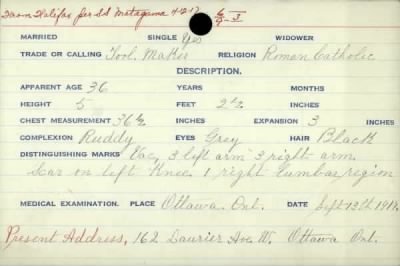 From Halifax per SS Metagama 4-12-17
MARRIED SINGLE Yes WIDOWER
TRADE OR CALLING Tool. Maker RELIGION Roman Catholic
DESCRIPTION.
APPARENT AGE 36 YEARS MONTHS
HEIGHT 5 FEET 2½ INCHES
CHEST MEASUREMENT 36½ INCHES EXPANSION 3 INCHES
COMPLEXION Ruddy EYES Grey HAIR Black
DISTINGUISHING MARKS Vac, 3 left arm 3 right arm
Scar on left Knee. 1 right lumbar region
MEDICAL EXAMINATION. PLACE Ottawa. Ont. DATE Sept 12th 1917.
Present Address, 162 Laurier Ave. W. Ottawa Ont.